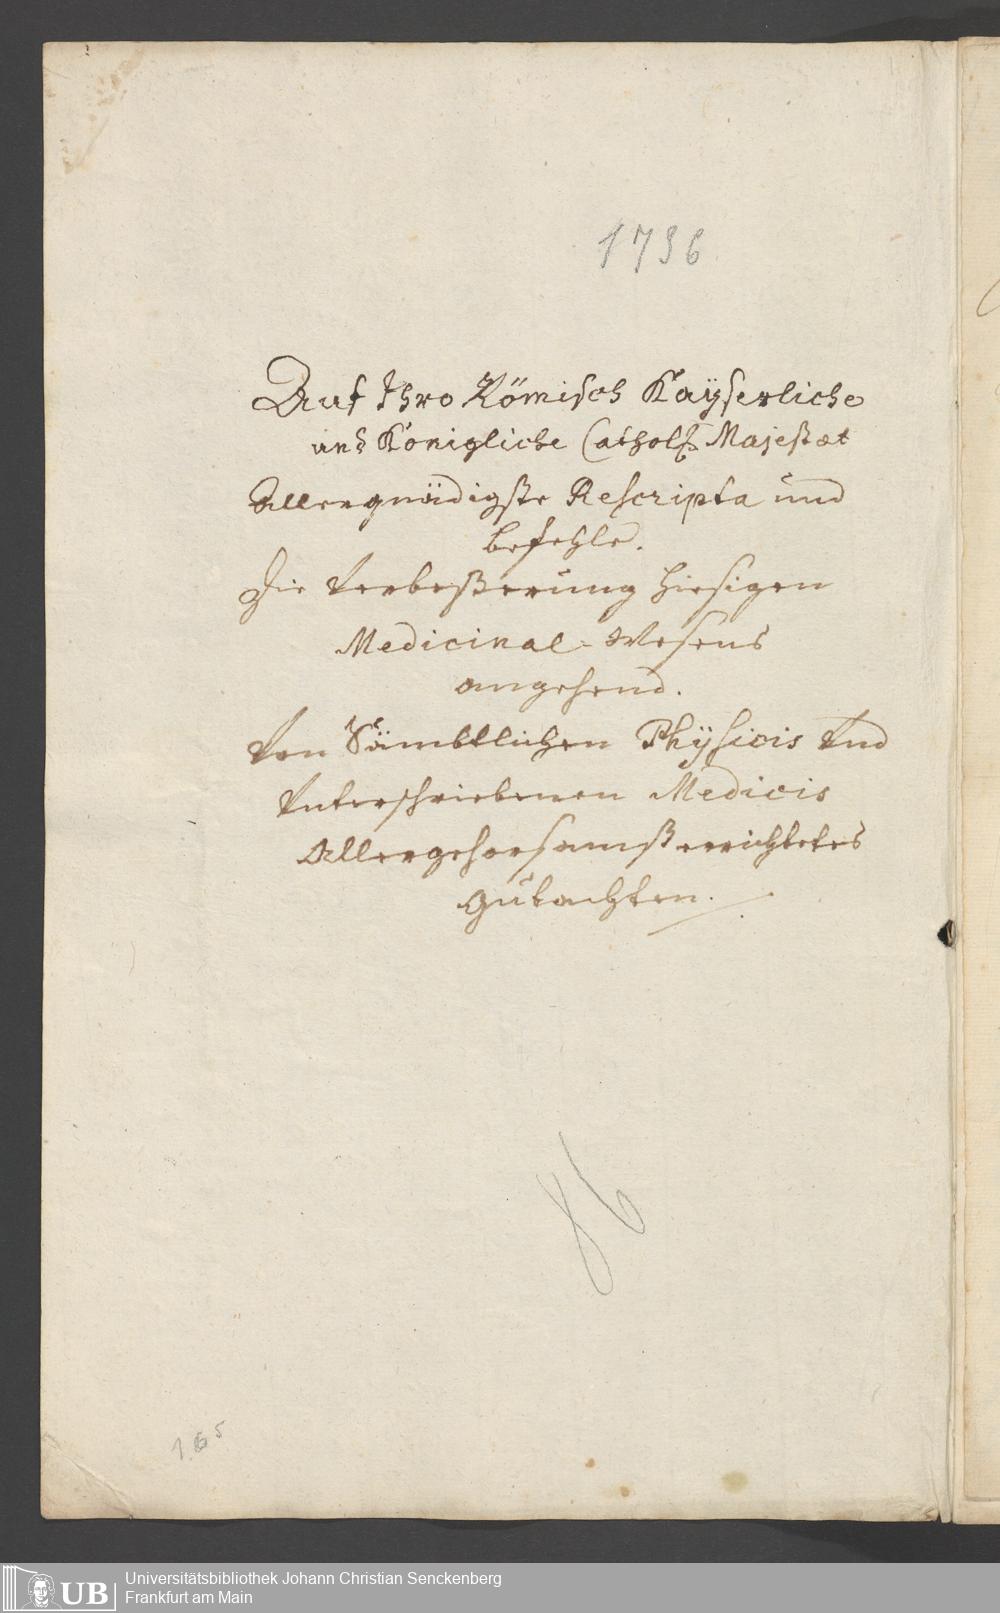 1736
Auf Ihro Römisch Kayserliche
und Königliche Cathol. Majestæt
Allergnädigste Rescripta und
befehle.
Die Verbeßerung hiesigen
Medicinal-Wesens
angehend.
Von Sämbtlichen Phÿsicis Und
Unterschriebenen Medicis
Allergehorsamst errichtetes
Gutachten.
86
165
UB
Universitätsbibliothek Johann Christian Senckenberg
Frankfurt am Main